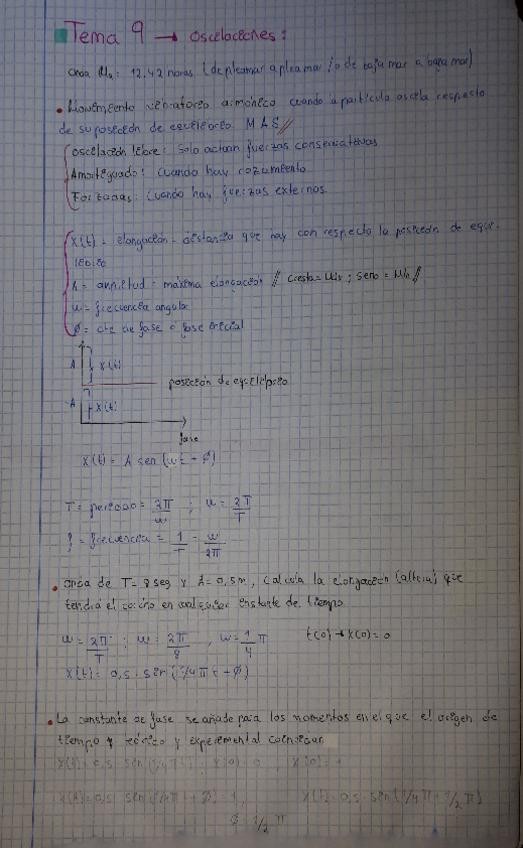 Tema 9 → oscilaciones:
onda M2: 12,42 horas (de pleamar a pleamar / o de bajamar a bajamar)
• Movimiento vibratorio armónico cuando la partícula oscila respecto
de su posición de equilibrio. M A S //
Oscilación libre: Solo actúan fuerzas conservativas
Amortiguado: Cuando hay rozamiento
Forzadas: Cuando hay fuerzas externas
X(t) = elongación = distancia que hay con respecto la posición de equi-
librio
A = amplitud = máxima elongación // Cresta = ; seno = //
w = frecuencia angular
φ = cte de fase o fase inicial
A X(t)
posición de equilibrio
-A X(t)
fase
X(t) = A sen (wt - φ)
T = periodo = 2π/w ; w = 2π/T
f = frecuencia = 1/T = w/2π
• onda de T = 8 seg y A = 0,5m, calcula la elongación (altura) que
tendrá el en cualquier instante de tiempo
w = 2π/T ; w = 2π/8 , w = 1/4 π t(0) → X(0) = 0
X(t) = 0,5 · sin (1/4 π t - φ)
• La constante de fase se añade para los momentos en el que el origen de
tiempo y teórico y experimental coincidan
X(t) = 0,5 sin (1/4 π t) ; X(0) = 0 ; X(0) = 1
X(t) = 0,5 sin (1/4 π t + φ) = 1 X(t) = 0,5 · sin (1/4 π t + 1/2 π)
φ = 1/2 π